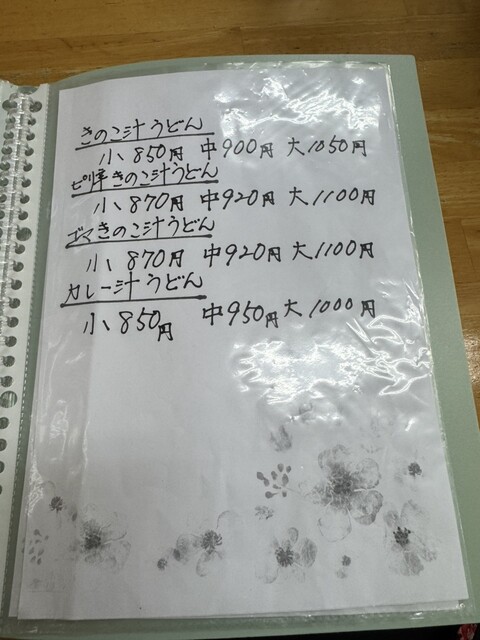 きのこ汁うどん
小 850円 中900円 大1050円
ピリ辛きのこ汁うどん
小 870円 中920円 大1100円
ゴマきのこ汁うどん
小 870円 中920円 大1100円
カレー汁うどん
小 850円 中950円 大1000円